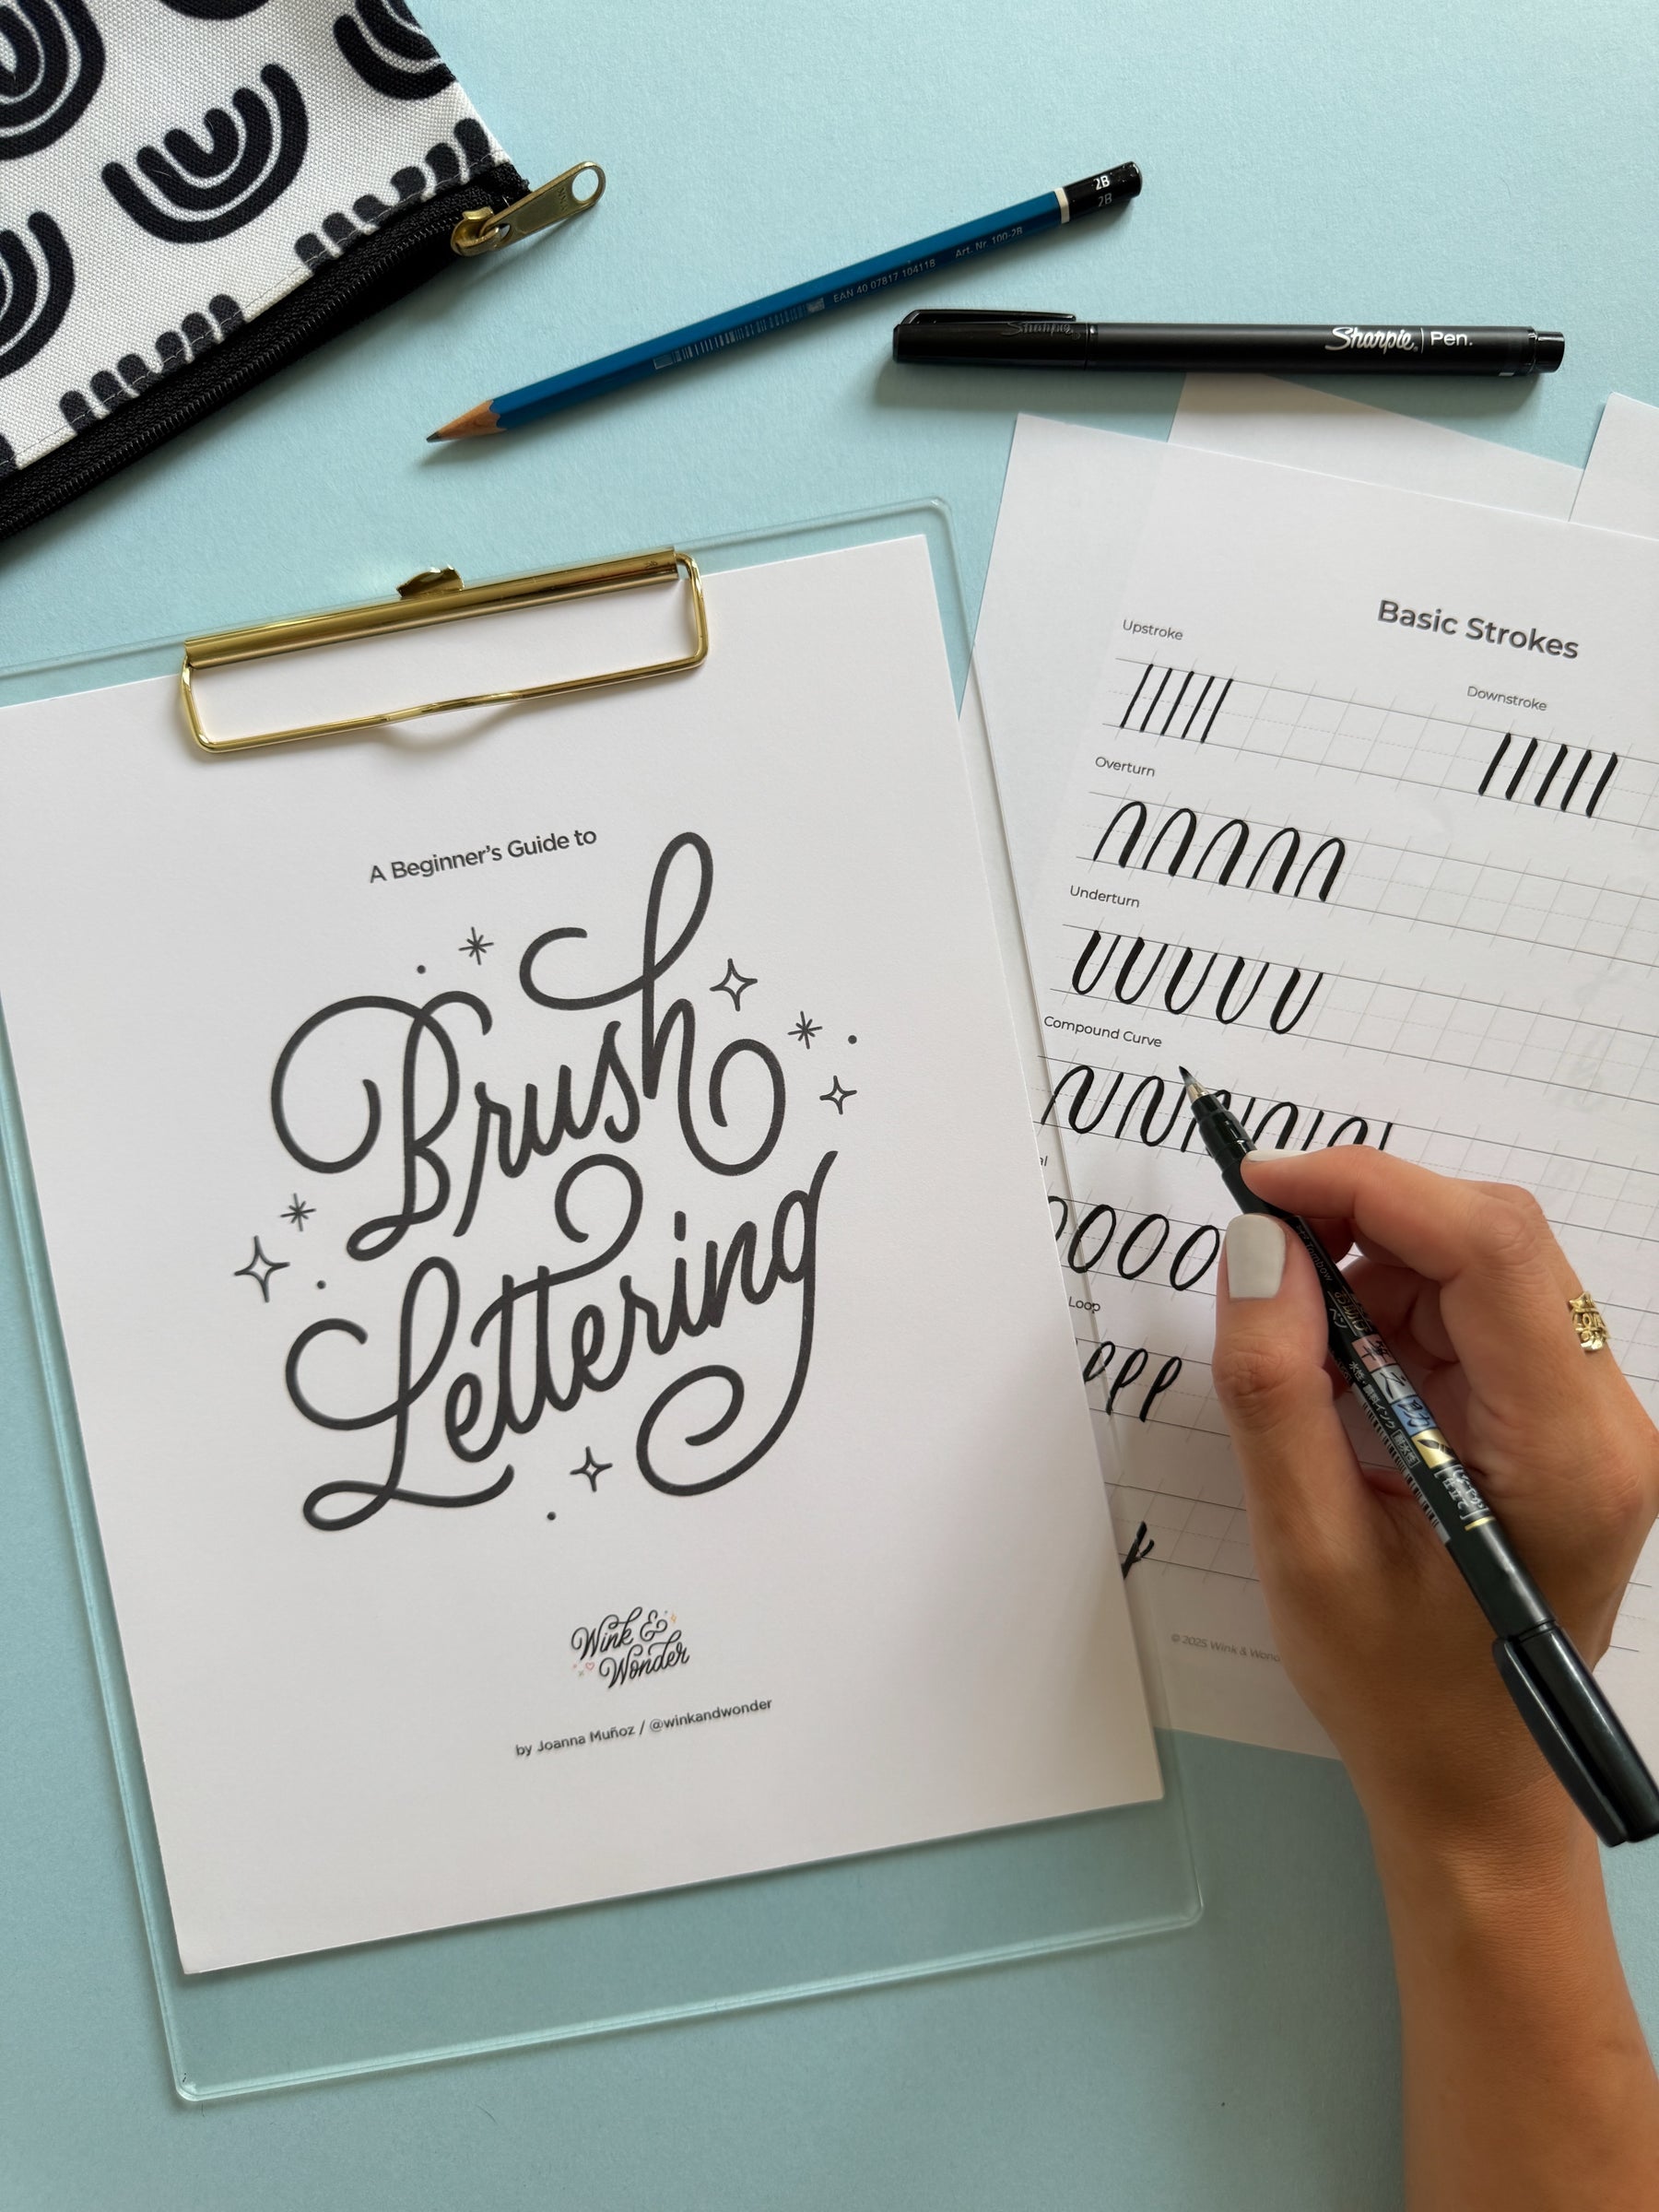 2B
2B
EAN 40 07817 104118 Art. Nr. 100-2B
Sharpie
Sharpie. | Pen.
Basic Strokes
Upstroke
Downstroke
Overturn
Underturn
Compound Curve
al
Loop
© 2025 Wink & Wond
A Beginner's Guide to
Brush
Lettering
Wink &
Wonder
by Joanna Muñoz / @winkandwonder
Tombow